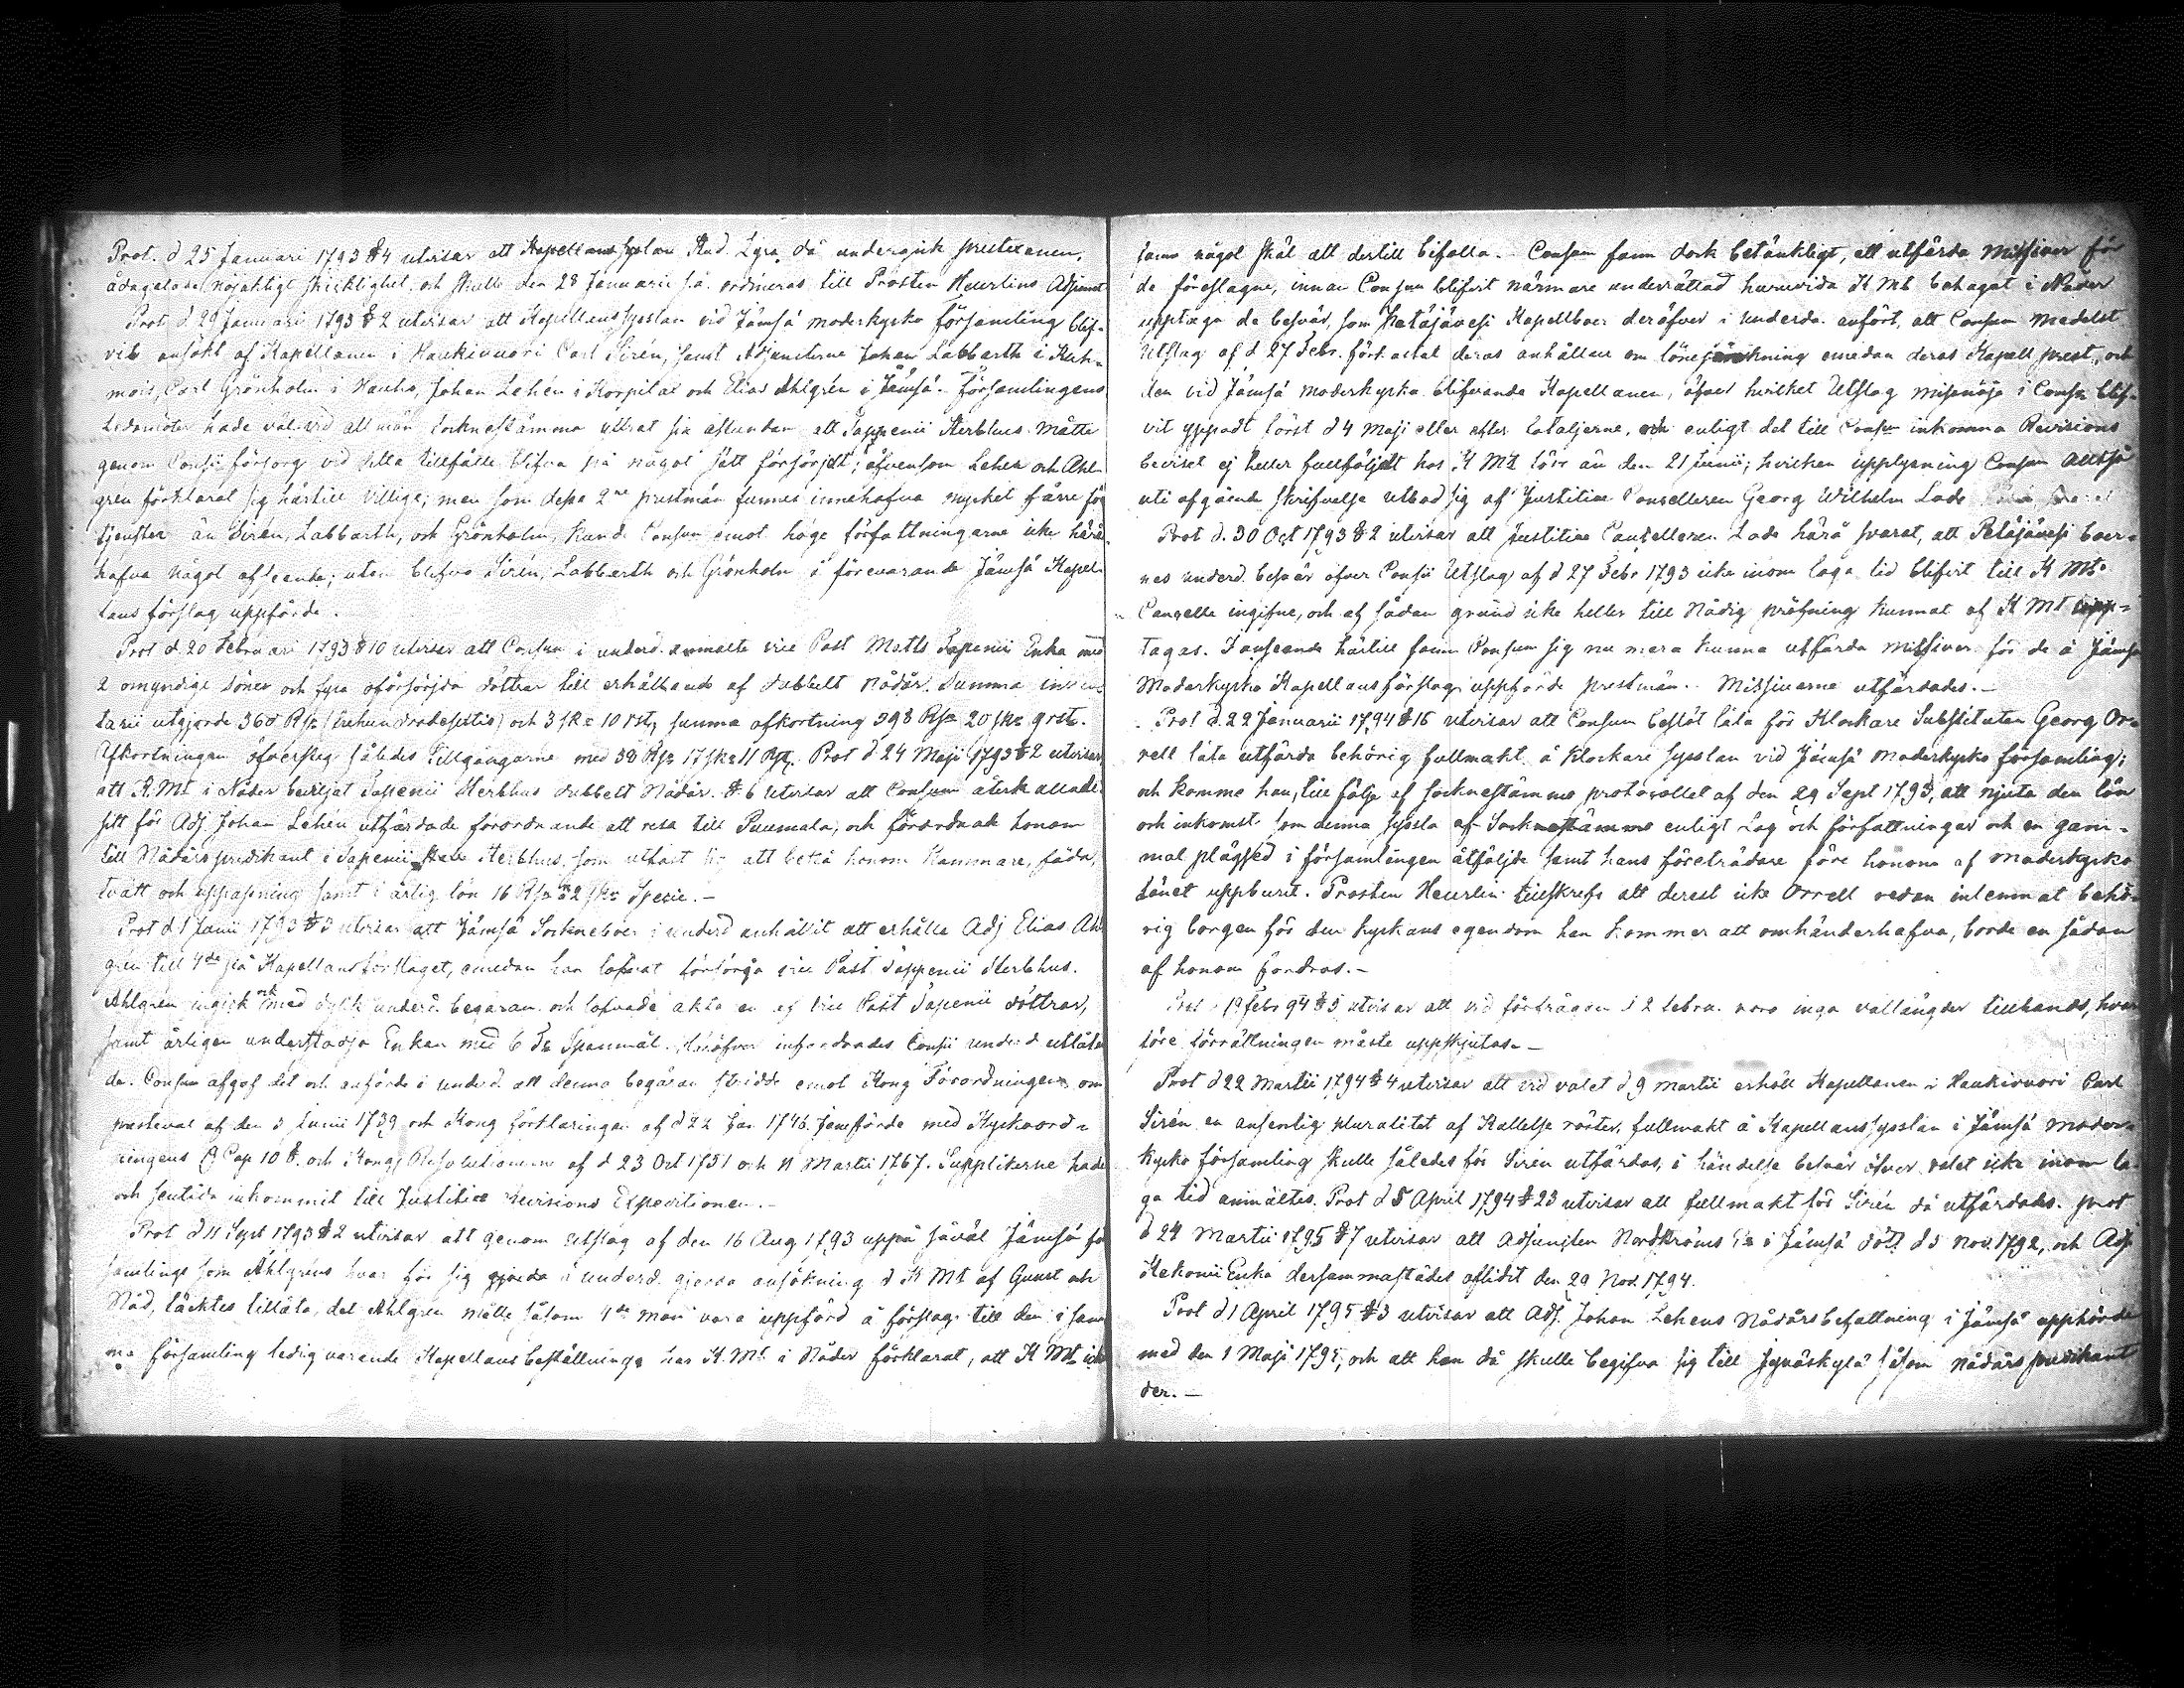 Prot. d 25 Januari 1793 § 4 utvisar att Stud. Zgra då undergick prestexamen,
ådagalade nöjaktigt skicklighet, och skulle den 28 Januarii s.å. ordineras till Prosten Heurlins Adjunct
Prot. d 29 Januari 1793 § 2 utvisar att Kapellanssysslan vid Jämsä moderkyrko församling blif-
vit ansökt af Kapellanen i Haukivuori Carl Sirén, samt Adjuncterne Johan Labbarth i Kuh-
mois, Carl Grönholm i Hauho, Johan Lehén i Korpilax och Elias Ahlgrén i Jämsä. Församlingens
Ledamöter hade väl vid allmän socknestämma yttrat sin åstundan att Tappenii Sterbhus måtte
genom Consii försorg vid detta tillfälle blifva på något sätt försörjdt; äfvensom Lehen och Ahl-
gren förklarat sig härtill villige; men som dessa 2ne prestmän funnes innehafva mycket färre för
tjenster än Siren, Labbarth, och Grönholm, kunde Consum emot höge författningarne icke härå
hafva något afseende; utan blefvo Sirén, Labbarth och Grönholm å förevarande Jämsä Kapel-
lans förslag uppförde.
Prot d 20 Februari 1793 § 10 utvisar att Consum i underd. anmälte vice Past Matts Tapenii Enka med
2 omyndige söner och fyra oförsörjda döttrar till erhållande af dubbelt Nådår. Summa inven-
tarii utgjorde 360 Rsr (trehundradesextio) och 3 sk 10 rst, summa afkortning 398 Rsr 20 sk 9 rst.
Afkortningen öfversteg således tillgångarne med 38 Rsr 17 sk 11 Rst. Prot d 24 Maji 1793 § 2 utvisar
att K. Mt i Nåder beviljat Tapenii Sterbhus dubbelt Nådår. § 6 utvisar att Consum återkallade
sitt för Adj. Johan Lehen utfärdade förordnande att resa till Puumala, och förordnade honom
till Nådårspredikant i Tapenii Sterbhus, som utfäst sig att bestå honom Kammare, föda,
tvätt och uppassning samt i årlig lön 16 Rsr 32 sk Specie.-
Prot d 1 Junii 1793 § 3 utvisar att Jämsä Sockneboer i underd anhållit att erhålla Adj Elias Ahl
gren till 4de på Kapellansförslaget, emedan han lofvat försörja vice Past Tappenii Sterbhus.
Ahlgrén ingick ock med dylik underd. begäran och lofvade äkta en af vice Past Tapenii döttrar,
samt årligen understödja Enkan med 6 Tr Spanmål. Häröfver infordrades Consii underd utlåtan
de. Consum afgaf det och anförde i underd. att denna begäran stridde emot Kong Förordningen om
prestval af den 3 Junii 1739 och Kong förklaringen af d 22 Jan 1746. Jemförde med Kyrkoord-
ningens Cap 10 §. och Kongs Resolutionerne af d 23 Oct 1751 och 11 Martii 1767. Supplikerne hade
och sentida inkommit till Justitiæ Revisions Expeditionen.-
Prot d 11 Sept 1793 § 2 utvisar att genom Utslag af den 16 Aug 1793 uppå såväl Jämsä för
samlings som Ahlgrens hvar för sig gjorda i underd. gjorda ansökning d K Mt af Gunst och
Nåd, täcktes tillåta, det Ahlgren måtte såsom 4de man vara uppförd å förslag till den i sam
ma församling ledigvarande Kapellansbeställning har K. Mt i Nåder förklarat, att K Mt icke
något skäl att dertill bifalla.- Consum fann dock betänkligt, att utfärda Missiver för
de föreslagne, innan Consum blifvit närmare underrättad huruvida K Mt behagat i Nåder
upptaga de besvär, som Petäjävesi Kapellboer deröfver i underd. anfört, att Consum medelst
Utslag af d 27 Febr. förkastat deras anhållan om emedan deras Kapell prest, och
den vid Jämsä moderkyrka blifvande Kapellanen, öfver hvilket Utslag missnöje i Consm blif-
vit yppadt först d 4 Maji eller efter fataljerne, och enligt det till Consm inkomna Revisions
beviset ej heller fullföljdt hos K Mt förr än den 21 Junii; hvilken upplysning Consum alltså
uti afgående skrifvelse utbad sig af Justitiæ Canselleren Georg Wilhelm Lode
Prot d. 30 Oct 1793 § 2 utvisar att Justitiæ Cantzelleren Lode härå svarat, att Petäjävesi boer-
nes underd. besvär öfver Consii Utslag af d 27 Febr 1793 icke inom laga tid blifvit till K Mts
Canzelle ingifne, och af sådan grund icke heller till Nådig pröfning kunnat af K Mt upp-
tagas. I anseende härtill fann Consum sig nu mera kunna utfärda missiver för de å Jämsä
Moderkyrko Kapellansförslag uppförde prestmän. Missiverne utfärdades.-
Prot d. 22 Januarii 1794 § 16 utvisar att Consum beslöt låta för Klockare Substituten Georg Or-
rell låta utfärda behörig fullmakt å Klockare sysslan vid Jämsä Moderkyrko församling;
och komme han, till följe af socknestämmo protocollet af den 29 Sept 1793, att njuta den lön
och inkomst som denna syssla af Socknestämmo enligt Lag och författningar och en gam-
mal plägsed i församlingen åtföljde samt hans företrädare före honom af Moderkyrko
länet uppburit. Prosten Heurlin tillskrefs att derest icke Orrell redan inlemnat behö-
rig borgen för den kyrkans egendom han kommer att omhänderhafva, borde en sådan
af honom fordras.-
Prot 19 Febr 94 § 5 utvisar att vid förfrågan d 2 Febru. voro inga vallängder tillhands, hvar
före förrättningen måste uppskjutas.-
Prot d 22 Martii 1794 § 4 utvisar att vid valet d 9 martii erhöll Kapellanen i Haukivuori Carl
Sirén en ansenlig pluralitet af Kallelse röster, fullmakt å Kapellanssysslan i Jämsä Moder-
kyrko församling skulle således för Sirén utfärdas, i händelse besvär öfver valet icke inom la-
ga tid anmältes. Prot d 5 April 1794 § 23 utvisar att fullmakt för Sirén då utfärdades. Prot
d 24 Martii 1795 § 7 utvisar att Adjuncten Nordströms i Jämsä dött d 5 Nov. 1792, och Adj.
Hekonii Enka dersammastädes aflidit den 29 Nov. 1794.
Prot d 1 April 1795 § 3 utvisar att Adj. Johan Lehens Nådårsbefattning i Jämsä upphörde
med den 1 Maji 1795, och att han då skulle begifva sig till Jyväskylä såsom nådårspredikant
der.-